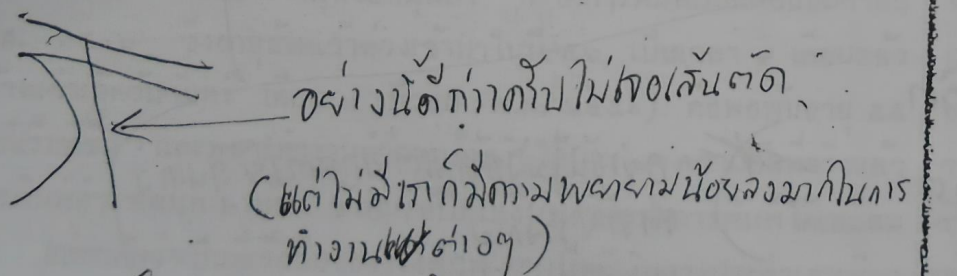 อย่างนี้ดีกว่าครับไม่เจอเส้นตัด
(แต่ไม่มีเราก็มีความพยายามน้อยลงมากในการ
ทำงานต่างๆ)